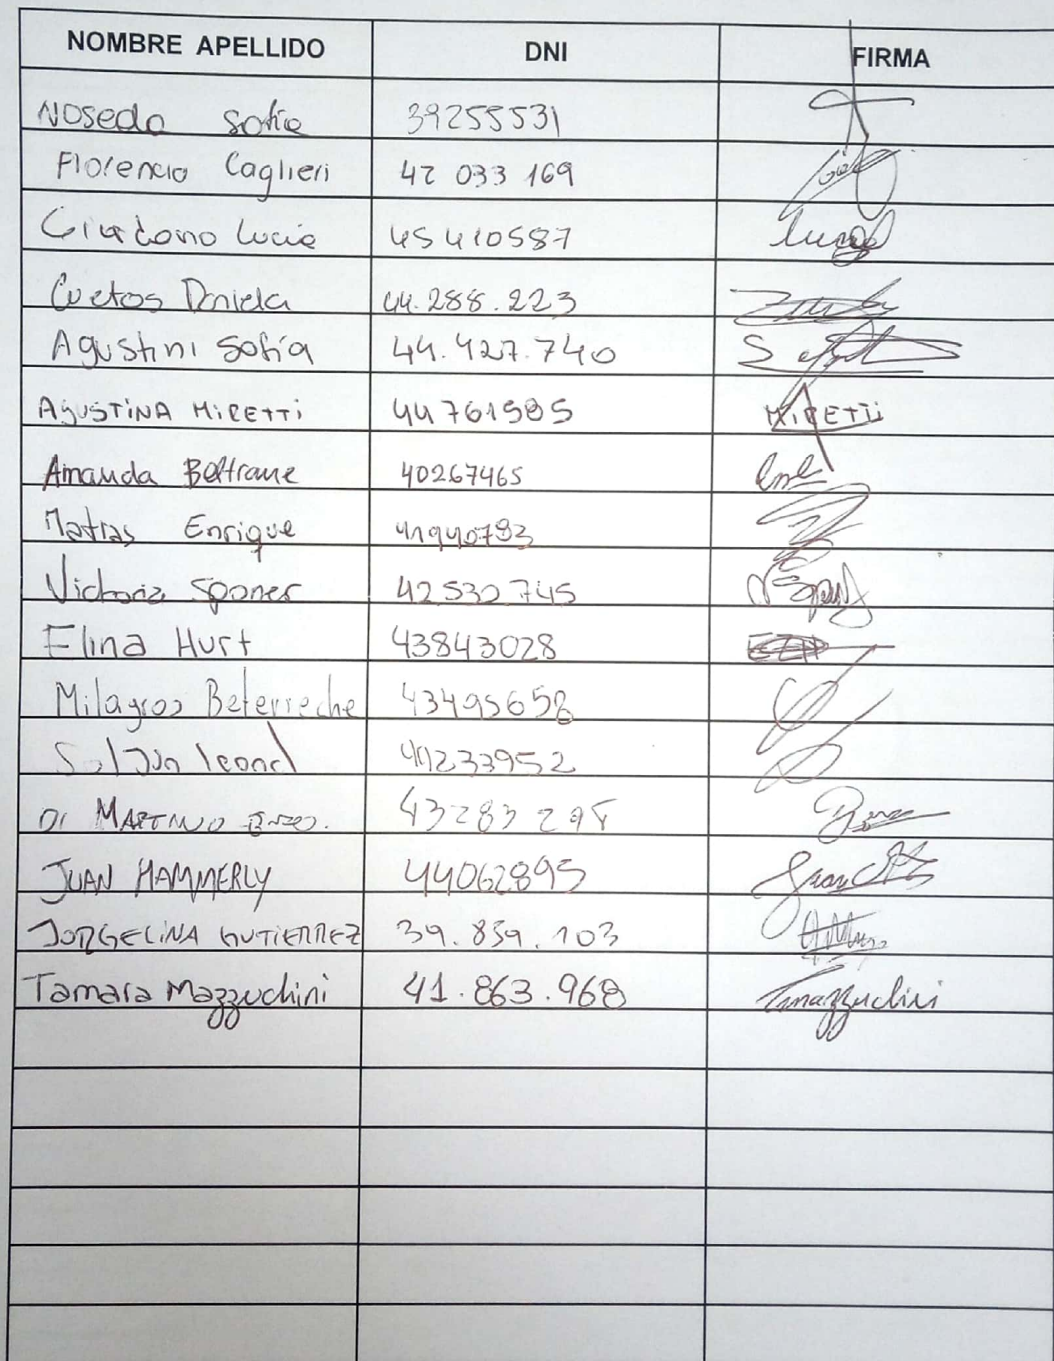 NOMBRE APELLIDO DNI FIRMA
Noseda Sofia 39255531
Florencia Caglieri 42 033 169
Giordano Lucia 45410587
Cuetos Daniela 44.288.223
Agustini Sofía 44.427.740
AGUSTINA MIRETTI 44761585 MIRETTI
Amanda Beltrame 40267465
Matias Enrique 41940793
Victoria Sponer 42530745
Elina Hurt 43843028
Milagros Beterreche 43495658
43283
DI MARTINO Enzo.
JUAN HAMMERLY 44062895
JORGELINA GUTIERREZ 39.859.103
Tamara Mazzuchini 41.863.968 Tmazzuchini